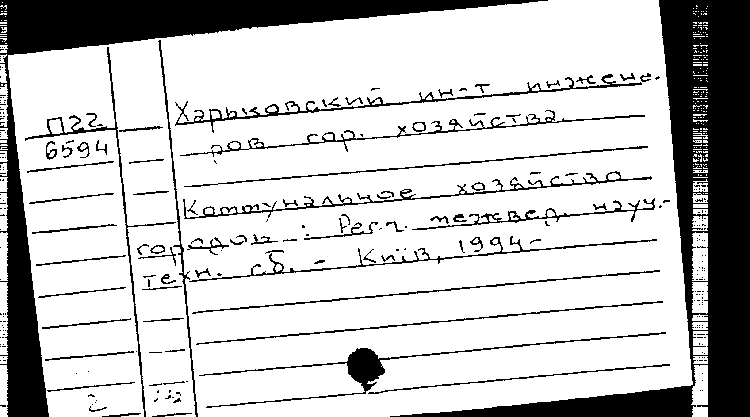 П22
6594
Харьковский ин-т инжене-
ров гор. хозяйства.
Коммунальное хозяйство
городов : Респ. межвед. науч.-
техн. сб. - Киïв, 1994-
2